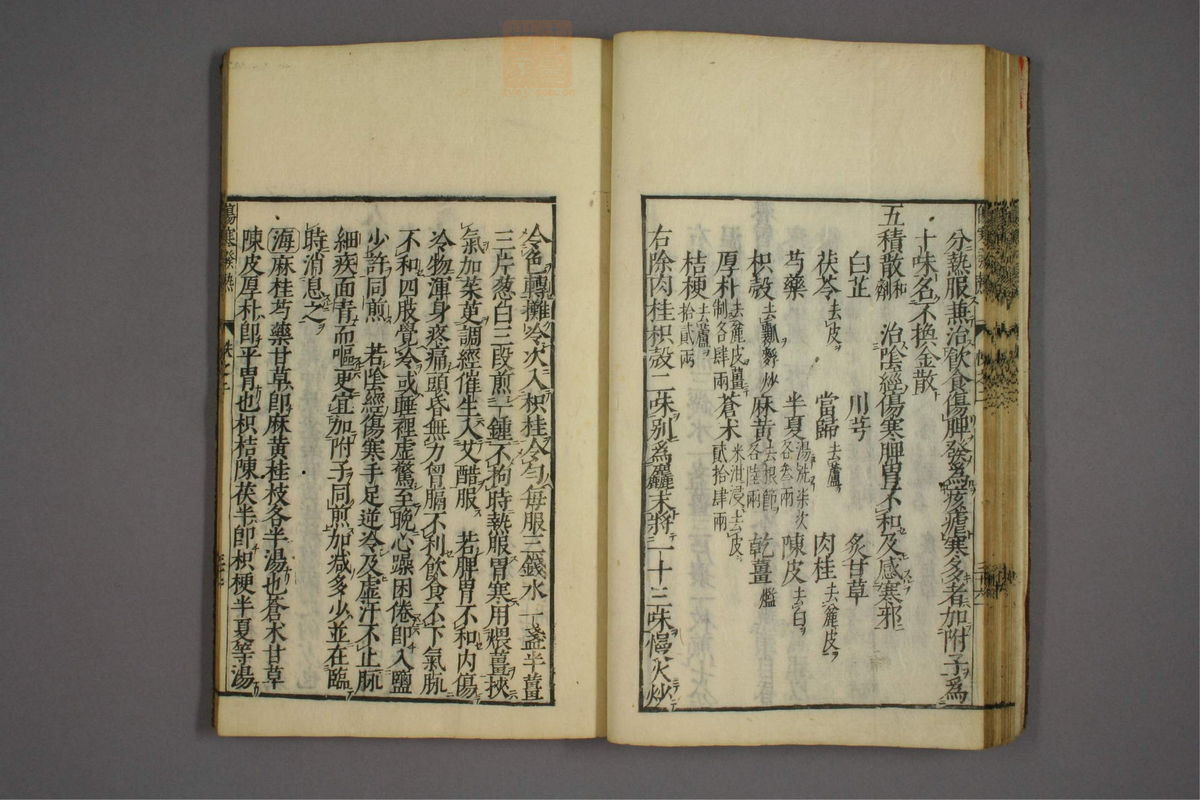 分熱服兼治飲食傷脾發爲痎瘧寒多者加附子爲
十味名不換金散
五積散和劑 治陰經傷寒脾胃不和及感寒邪
白芷 川芎 炙甘草
茯苓去皮 當歸去蘆 肉桂去麄皮
芍藥 半夏湯洗柒次各叁兩 陳皮去白
枳殼去瓤麩炒 麻黄去根節各陸兩 乾薑爁
厚朴去麄皮薑制各肆兩 蒼术米泔浸去皮貳拾肆兩
桔梗去蘆拾貳兩
右除肉桂枳殼二味別爲麤末將一十三味慢火炒
令色轉攤冷次入枳桂令勻每服三錢水一盞半薑
三片葱白三段煎一鍾不拘時熱服胃寒用煨薑挾
氣加茱萸調經催生入艾醋服 若脾胃不和内傷
冷物渾身疼痛頭昏無力胷膈不利飲食不下氣脉
不和四肢覺冷或睡裡虚驚至晚心躁困倦即入鹽
少許同煎 若陰經傷寒手足逆冷及虚汗不止脉
細疾面青而嘔更宜加附子同煎加減多少並在臨
時消息之
海麻桂芍藥甘草即麻黄桂枝各半湯也蒼术甘草
陳皮厚朴即平胃也枳桔陳茯半即枳梗半夏等湯
傷寒發熱